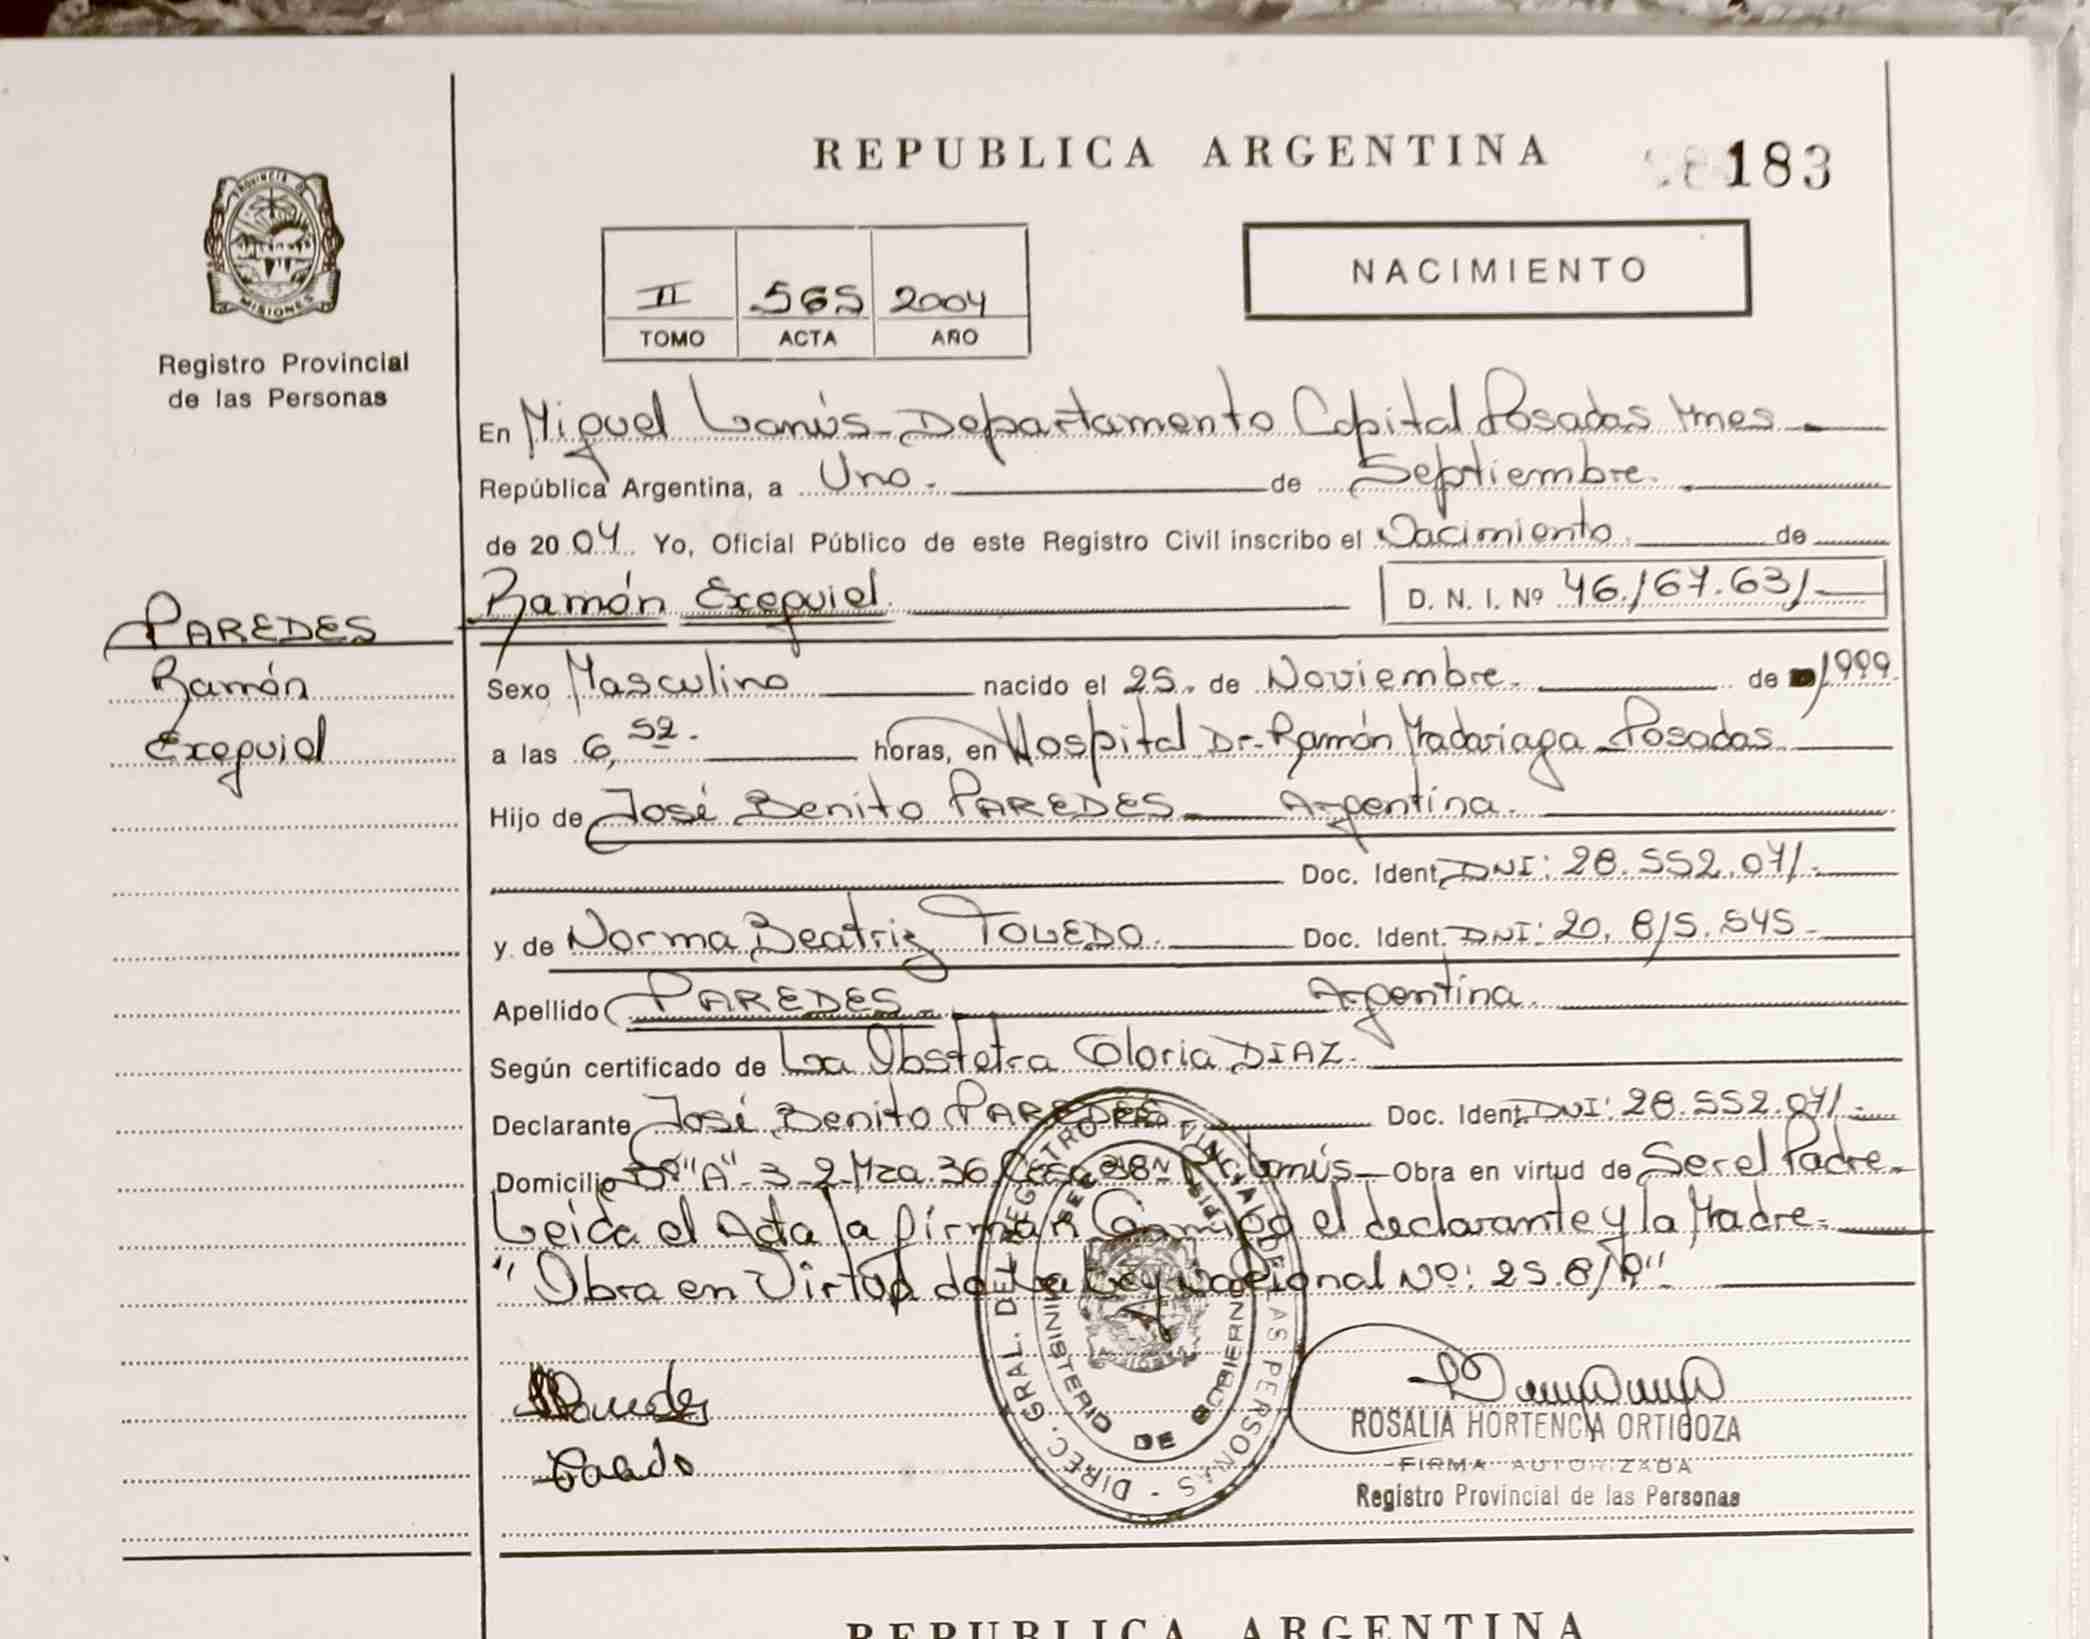 REPUBLICA ARGENTINA
183
PROVINCIA DE
MISIONES
Registro Provincial
de las Personas
II 565 2004
TOMO ACTA AÑO
NACIMIENTO
En Miguel Lanús - Departamento Capital Posadas Mnes
República Argentina, a Uno.- de Septiembre.
de 2004. Yo, Oficial Público de este Registro Civil inscribo el Nacimiento. de
Ramón Exequiel. D. N. I. Nº 46.167.631
PAREDES
Ramón
Exequiel
Sexo Masculino nacido el 25. de Noviembre. de 1999.
a las 6,52.- horas, en Hospital Dr. Ramón Madariaga Posadas
Hijo de José Benito PAREDES Argentina.
Doc. Ident. DNI: 28.552.071.-
y de Norma Beatriz TOLEDO. Doc. Ident. DNI: 20.815.545-
Apellido PAREDES Argentina.
Según certificado de La Obstetra Gloria DIAZ.
Declarante José Benito PAREDES Doc. Ident. DNI: 28.552.071.-
Domicilio "A"-3-2-Mza.36.Casa 38- M. Lanús- Obra en virtud de Ser el Padre.
Leida el Acta la firman Conmigo el declarante y la Madre.
"Obra en Virtud de La Ley Nacional Nº: 25.819"
DIREC. GRAL. DEL REGISTRO PROVINCIAL DE LAS PERSONAS -
MINISTERIO DE GOBIERNO
ROSALIA HORTENCIA ORTIGOZA
FIRMA AUTORIZADA
Registro Provincial de las Personas
REPUBLICA ARGENTINA